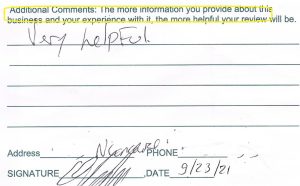 Additional Comments: The more information you provide about this
business and your experience with it, the more helpful your review will be.
Very helpful
Address PHONE
SIGNATURE ,DATE 9/23/21